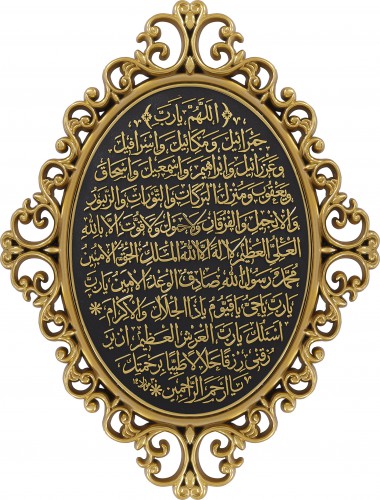 ﴿ اللهم يارب ﴾
جبرائيل وميكائيل واسرافيل
وعزرائيل وابراهيم واسمعيل واسحاق
ويعقوب ومنزل البركات والتورات والزبور
والانجيل والفرقان ولاحول ولاقوت الا بالله
العلى العظيم لا اله الا الله الملك الحق المبين
محمد رسول الله صادق الوعد الامين يارب
يارب ياحى ياقيوم ياذا الجلال والاكرام *
اسئلك يارب العرش العظيم ان تر
زقنى رزقا حلالا طيبا برحمتك
يا ارحم الراحمين *